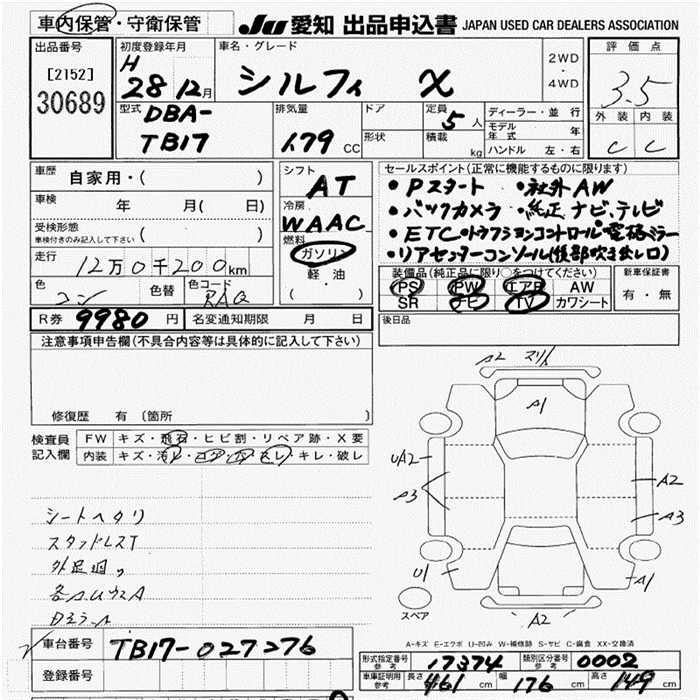 車内保管・守衛保管
JU 愛知 出品申込書 JAPAN USED CAR DEALERS ASSOCIATION
出品番号
[2152]
30689
初度登録年月
H 28 12月
車名・グレード
シルフィ X
2WD
・
4WD
評価点
3.5
外装 内装
C C
型式
DBA-
TB17
排気量
1.79 CC
ドア
形状
定員 5人
積載 kg
ディーラー・並行
モデル年式 年
ハンドル 左・右
車歴
自家用・( )
車検
年 月( 日)
受検形態
車検付きのみ記入して下さい ( )
走行
12万0千200km
色
コン
色替
色コード
RAQ
シフト
AT
冷房
WAAC
燃料
ガソリン
軽・油
( ・ )
セールスポイント(正常に機能するものに限ります)
・Pスタート ・社外AW
・バックカメラ ・純正ナビ、テレビ
・ETC
・リアセンターコンソール(後部吹き出し口)
装備品(純正品に限り○をつけてください)
PS PW エアB AW
SR ナビ TV カワシート
新車保証書
有・無
R券 9980 円
名変通知期限 月 日
後日品
注意事項申告欄(不具合内容等は具体的に記入して下さい)
修復歴 有 (箇所
検査員
記入欄
FW キズ・飛石・ヒビ割・リペア跡・X要
内装 キズ・汚レ・コゲ・穴・スレ・キレ・破レ
シートヘタリ
スタッドレスT
外足廻
A2
A1
UA2
A3
A2
A3
U1
A1
A2
スペア
A-キズ E-エクボ U-凹み W-補修跡 S-サビ C-腐食 XX-交換済
車台番号 TB17-027276
登録番号
形式指定番号 参考 17374
類別区分番号 参考 0002
車庫証明用 参考 長さ 461 cm 幅 176 cm 高さ 149 cm